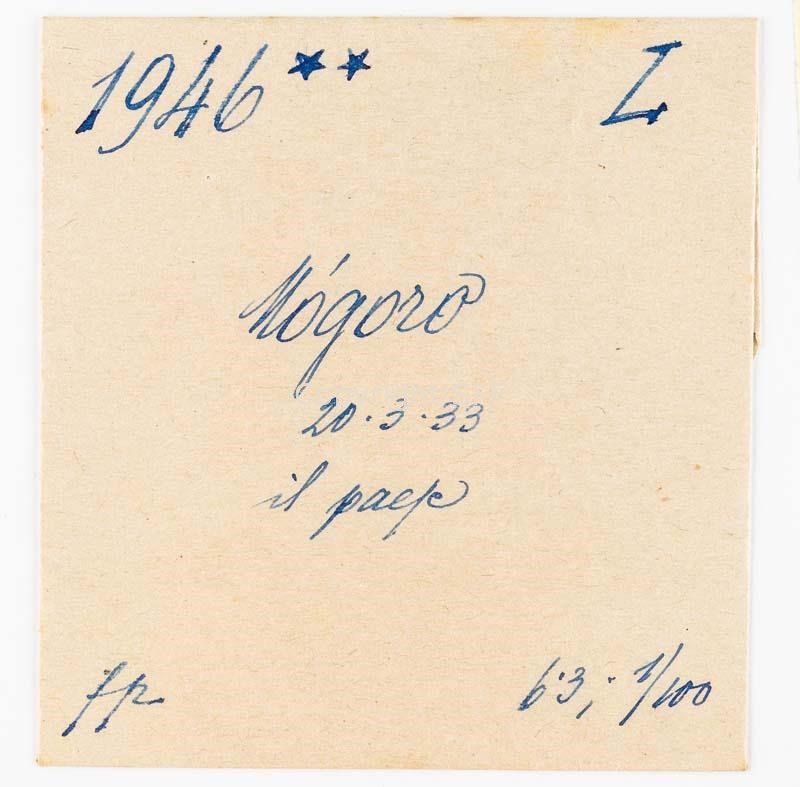 1946 ** L
Mógoro
20·3·33
il paese
fp.
6·3; 1/100